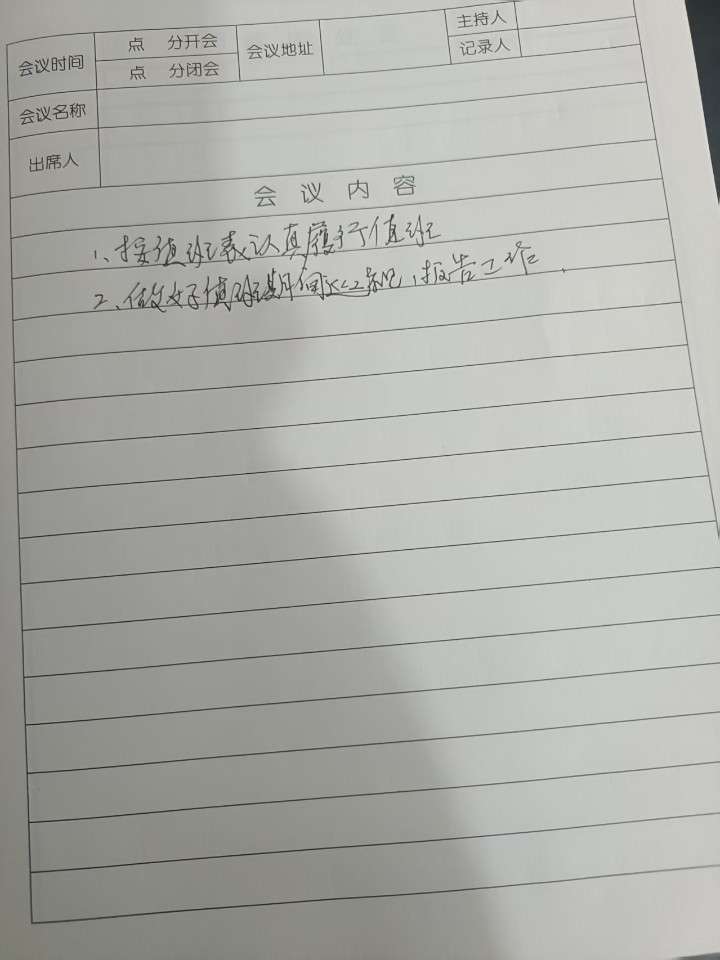 会议时间 点 分开会 会议地址 主持人
点 分闭会 记录人
会议名称
出席人
会 议 内 容
1、按值班表认真履行值班
2、做好值班期间记，报告工作、